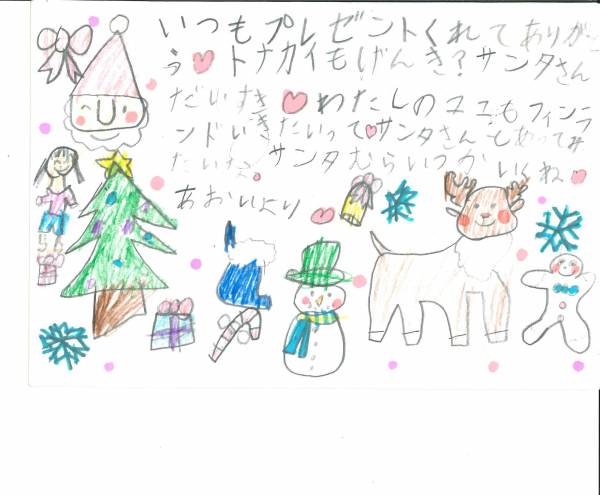 いつもプレゼントくれてありが
う♥トナカイもげんき?サンタさん
だいすき♥わたしのユユもフィンラ
ンドいきたいって♥サンタさんとあってみ
たいな。サンタむらいつかいくね♥
あおいより♥